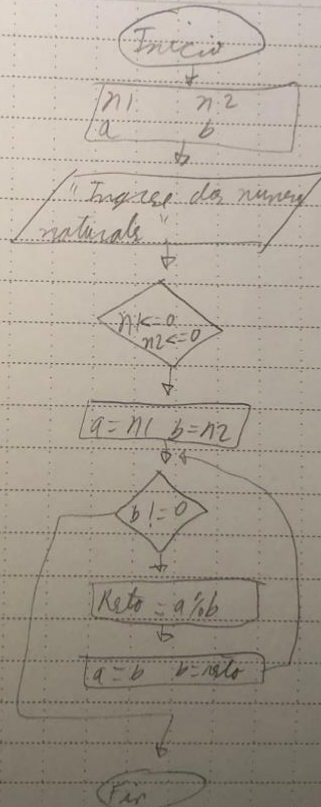 Inicio
n1 n2
a b
"Ingrese dos numeros
naturales"
n1<=0
n2<=0
a=n1 b=n2
b!=0
Resto=a%b
a=b b=resto
Fin